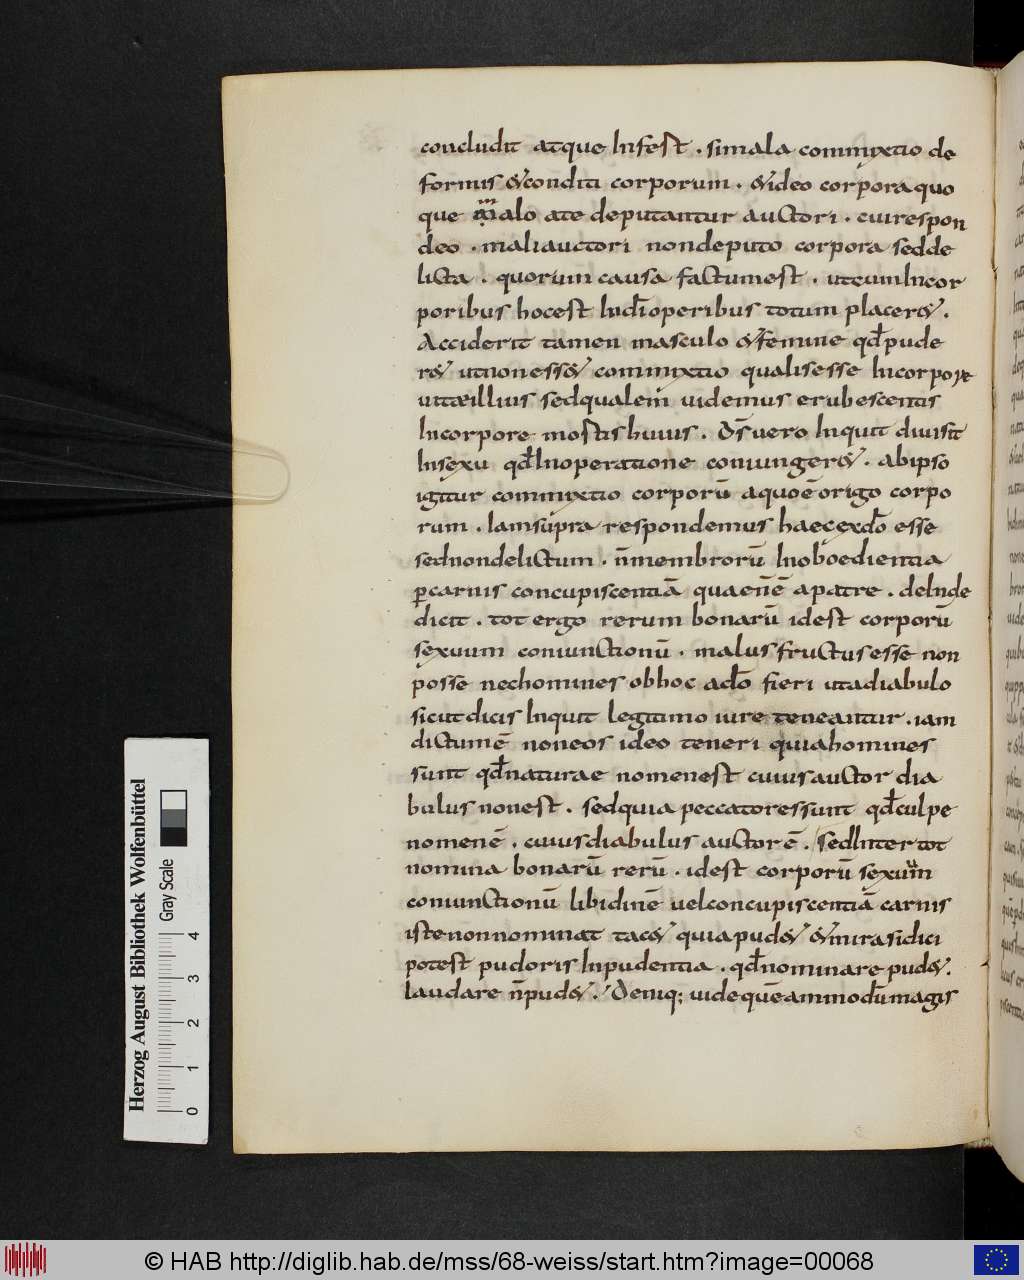 concludit atque Infest . simala commixtio de
formis &conditi corporum . &ideo corpora quo
que malo ate deputantur auctori . cuirespon
deo . maliauctori nondeputo corpora sedde
licta . quorum causa factumest . utcumIncor
poribus hocest Indīoperibus totum placer& .
Acciderit tamen masculo &femine qđpude
r& utnoness& commixtio qualisesse Incorpore
uitæillius sedqualem uidemus erubescentis
Incorpore mostishuius . Ds̄uero Inquit diuisit
Insexu qđInoperatione coniunger& . abipso
igitur commixtio corporū aquoē origo corpo
rum . Iamsupra respondemus haecexdō esse
sednondelictum . n̄membrorū Inoboedientia
ꝑcarnis concupiscentiā quaen̄ē apatre . deInde
dicit . tot ergo rerum bonarū idest corporū
sexuum coniunctionū . malusfructusesse non
posse nechomines obhoc adō fieri utadiabulo
sicutdicis Inquit legitimo iure teneantur . iam
dictumē noneos ideo teneri quiahomines
sunt qđnaturae nomenest cuiusauctor dia
bulus nonest . sedquia peccatoressunt qđculpe
nomenē . cuiusdiabulus auctor ē . sedInter tot
nomina bonarū rerū . idest corporū sexuum
coniunctionū libidinē uelconcupiscentiā carnis
istenonnominat tac& quiapud& &mirasidici
potest pudoris Inpudentia . qđnominare pud& .
laudare n̄pud& . Deniq; uidequēammodūmagis
Herzog August Bibliothek Wolfenbüttel
Gray Scale
0 1 2 3 4
© HAB http://diglib.hab.de/mss/68-weiss/start.htm?image=00068